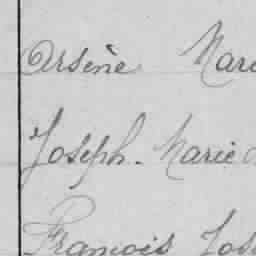 Arsène Mari
Joseph. Marie
François Jos